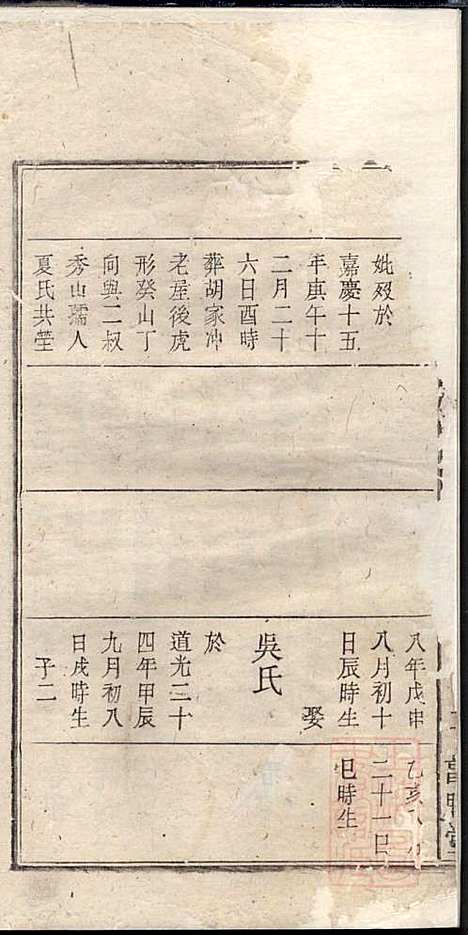 妣歿於
嘉慶十五
年庚午十
二月二十
六日酉時
葬胡家冲
老屋後虎
形癸山丁
向與二叔
秀山孺人
夏氏共塋
八年戊申
八月初十
日辰時生
娶
吳氏
於
道光二十
四年甲辰
九月初八
日戌時生
子二
乙亥八
二十一日
巳時生